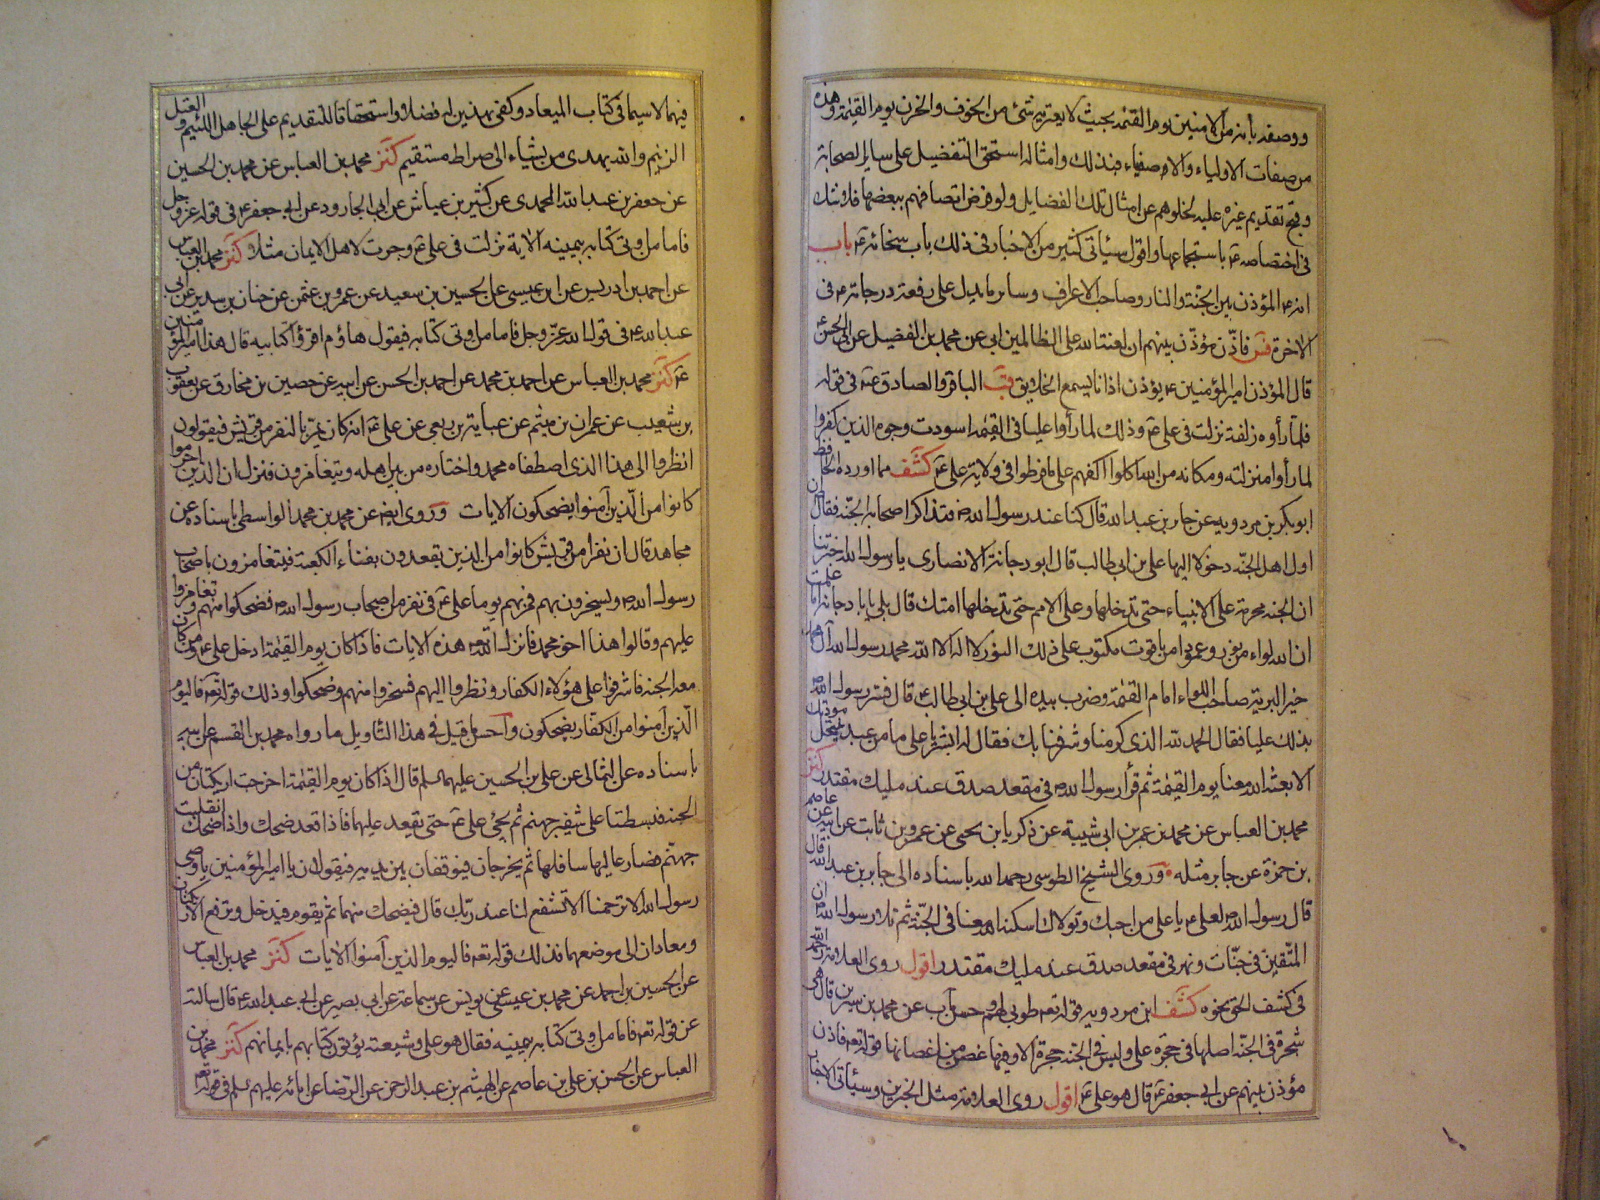 ووصفه بأنه من الآمنين يوم القيمة بحيث لا يعتريه شئ من الخوف والحزن يوم القيمة وهذه
من صفات الاولياء والاوصفياء فبذلك وامثاله استحق التفضيل على ساير الصحابة
وقبح تقديم غيره عليه لخلوهم عن امثال تلك الفضايل ولو فرض اتصافهم ببعضها فلا شك
فى اختصاصه ع باستجماعها واقول سيأتى كثير من الاخبار فى ذلك باب سخائه ع باب
انه ع المؤذن بين الجنة والنار وصاحب الاعراف وساير ما يدل على رفعة درجاته ع فى
الاخرة فس فأذن مؤذن بينهم ان لعنة الله على الظالمين ابى عن محمد بن الفضيل عن ابى الحسن ع
قال المؤذن امير المؤمنين ع يؤذن اذانا يسمع الخلايق قب الباقر والصادق ع فى قوله
فلما رأوه زلفة نزلت فى على ع وذلك لما رأوا عليا فى القيمة اسودت وجوه الذين كفروا
لما رأوا منزلته ومكانه من الله اكلوا اكفهم على ما فرطوا فى ولاية على ع كشف مما اورده الحافظ
ابو بكر بن مردويه عن جابر بن عبد الله قال كنا عند رسول الله ص فتذاكر اصحابه الجنة فقال ص ان
اول اهل الجنة دخولا اليها على بن ابى طالب قال ابو دجانة الانصارى يا رسول الله اخبرتنا
ان الجنة محرمة على الانبياء حتى تدخلها وعلى الامم حتى تدخلها امتك قال بلى يابا دجانة اما علمت
ان لله لواء من نور وعمودا من ياقوت مكتوب على ذلك النور لا اله الا الله محمد رسول الله آل محمد
خير البرية صاحب اللواء امام القيمة وضرب بيده الى على بن ابى طالب ع قال فسر رسول الله ص
بذلك عليا فقال الحمد لله الذى كرمنا وشرفنا بك فقال له ابشر يا على ما من عبد ينتحل مودتك
الا بعثه الله معنا يوم القيمة ثم قرأ رسول الله ص فى مقعد صدق عند مليك مقتدر كنز
محمد بن العباس عن محمد بن عمر بن ابى شيبة عن زكريا بن يحيى عن عمرو بن ثابت عن ابيه عن عاصم
بن حمزة عن جابر مثله وروى الشيخ الطوسى رحمه الله باسناده الى جابر بن عبد الله قال
قال رسول الله ص لعلى ع يا على من احبك وتولاك اسكنه الله معنا فى الجنة ثم تلا رسول الله ص ان
المتقين فى جنات ونهر فى مقعد صدق عند مليك مقتدر اقول روى العلامة رحمه الله
فى كشف الحق نحوه كشف ابن مردويه قوله تعه طوبى لهم وحسن مآب عن محمد بن سيرين قال هى
شجرة فى الجنة اصلها فى حجرة على وليس فى الجنة حجرة الا وفيها غصن من اغصانها قوله تعه فاذن
مؤذن بينهم عن ابى جعفر ع قال هو على ع اقول روى العلامة مثل الخبرين وسيأتى الاخبار
فيهما لا سيما فى كتاب الميعاد وكفى بهذين له فضلا واستحقاقا للتقديم على الجاهل اللئيم والعتل
الزنيم والله يهدى من يشاء الى صراط مستقيم كنز محمد بن العباس عن محمد بن الحسين
عن جعفر بن عبد الله المحمدى عن كثير بن عياش عن ابى الجارود عن ابى جعفر ع فى قوله عز وجل
فاما من اوتى كتابه بيمينه الآية نزلت فى على ع وجرت لاهل الايمان مثلا كنز محمد بن العباس
عن احمد بن ادريس عن ابن عيسى عن الحسين بن سعيد عن عمرو بن عثمن عن حنان بن سدير عن ابى
عبد الله ع فى قول الله عز وجل فاما من اوتى كتابه فيقول هاؤم اقرؤا كتابيه قال هذا امير المؤمنين
ع كنز محمد بن العباس عن احمد بن محمد عن احمد بن الحسن عن ابيه عن حصين بن مخارق عن يعقوب
بن شعيب عن عمران بن ميثم عن عباية بن ربعى عن على ع انه كان يمر بالنفر من قريش فيقولون
انظروا الى هذا الذى اصطفاه محمد واختاره من بين اهله ويتغامزون فنزل ان الذين اجرموا
كانوا من الذين آمنوا يضحكون الآيات وروى ايضا عن محمد بن محمد الواسطى باسناده عن
مجاهد قال ان نفرا من قريش كانوا من الذين يقعدون بفناء الكعبة فيتغامزون باصحاب
رسول الله ص ويسخرون بهم فمر بهم يوما على ع فى نفر من اصحاب رسول الله ص فضحكوا منهم وتغامزوا
عليهم وقالوا هذا اخو محمد فانزل الله تعه هذه الآيات فاذا كان يوم القيمة ادخل على ع ومن كان
معه الجنة فاشرفوا على هؤلاء الكفار ونظروا اليهم فسخروا منهم وضحكوا وذلك قوله تعه فاليوم
الذين آمنوا من الكفار يضحكون واحسن ما قيل فى هذا التأويل ما رواه محمد بن القسم عن ابيه
باسناده عن الثمالى عن على بن الحسين عليهما السلم قال اذا كان يوم القيمة اخرجت اريكتان من
الجنة فبسطتا على شفير جهنم ثم يجئ على ع حتى يقعد عليهما فاذا قعد ضحك واذا ضحك انقلبت
جهنم فصار عاليها سافلها ثم يخرجان فيوقفان بين يديه فيقولان يا امير المؤمنين يا وصى
رسول الله الا ترحمنا الا تشفع لنا عند ربك قال فيضحك منهما ثم يقوم فيدخل وترفع الاريكتان
ويعادان الى موضعهما فذلك قوله تعه فاليوم الذين آمنوا الآيات كنز محمد بن العباس
عن الحسين بن احمد عن محمد بن عيسى عن يونس عن سماعة عن ابى بصير عن ابى عبد الله ع قال سالته
عن قوله تعه فاما من اوتى كتابه بيمينه فقال هو على وشيعته يؤتون كتابهم بايمانهم كنز محمد بن
العباس عن الحسن بن على بن عاصم عن الهيثم بن عبد الرحمن عن الرضا عن ابائه عليهم السلم فى قوله تعه